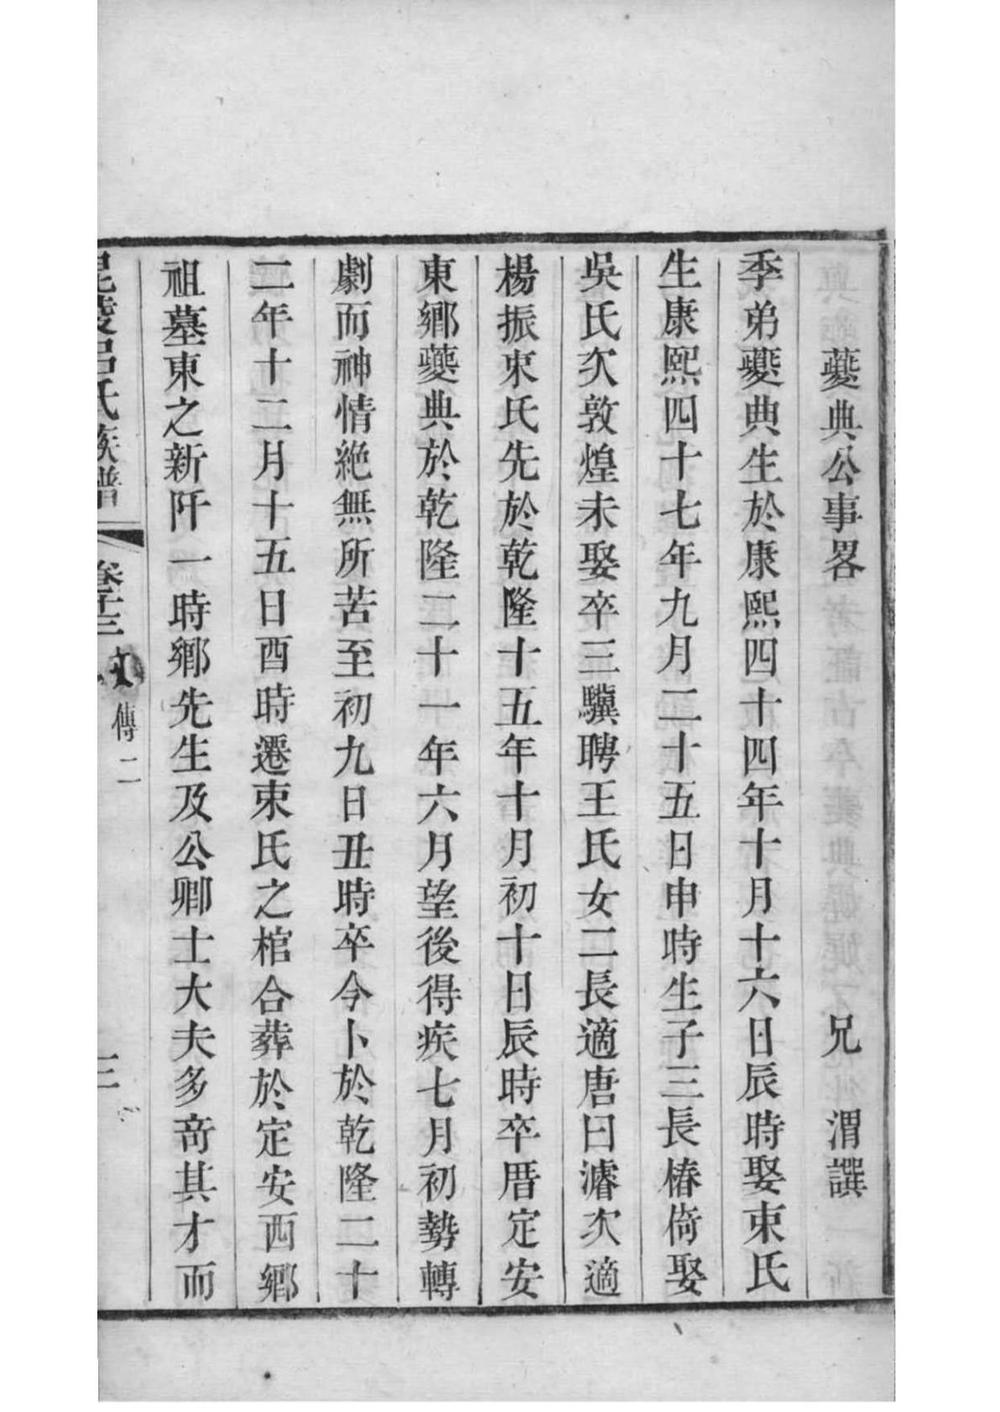 夔典公事畧 兄 渭譔
季弟夔典生於康熙四十四年十月十六日辰時娶束氏
生康熙四十七年九月二十五日申時生子三長椿倚娶
吳氏次敦煌未娶卒三驥聘王氏女二長適唐曰濬次適
楊振束氏先於乾隆十五年十月初十日辰時卒厝定安
東鄉夔典於乾隆二十一年六月望後得疾七月初勢轉
劇而神情絕無所苦至初九日丑時卒今卜於乾隆二十
二年十二月十五日酉時遷束氏之棺合葬於定安西鄉
祖墓東之新阡一時鄉先生及公卿士大夫多奇其才而
毘陵呂氏族譜 卷十三 傳二 三